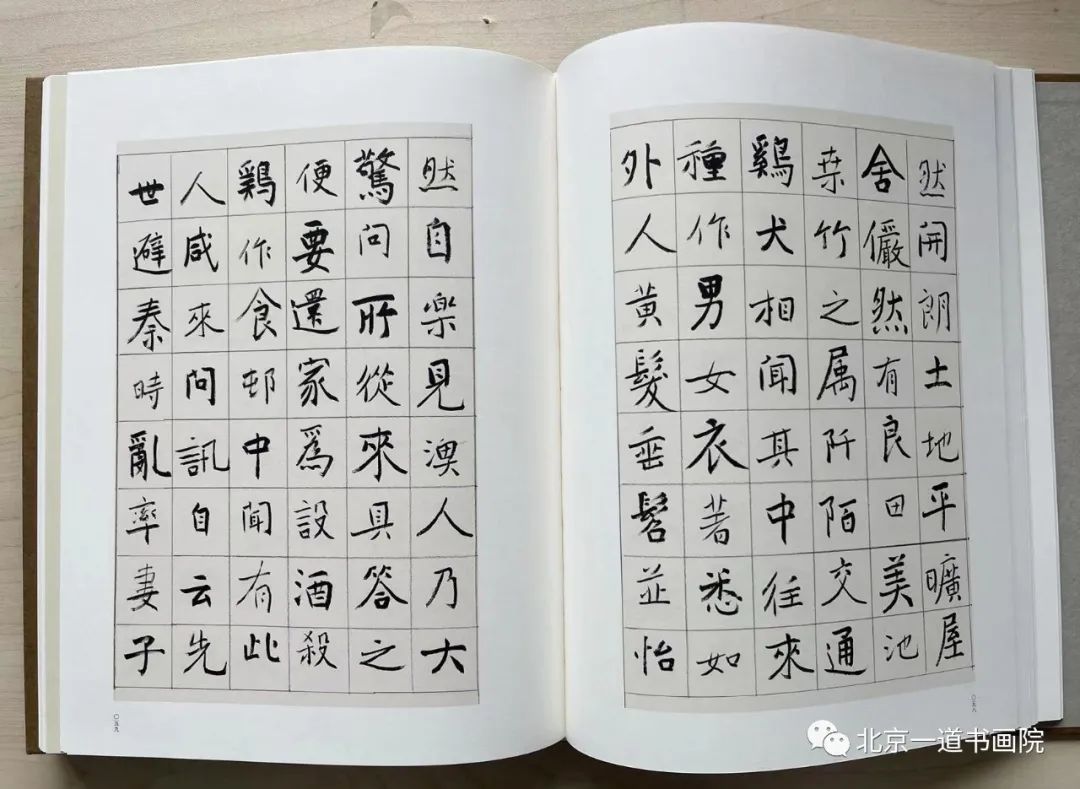 然開朗土地平曠屋
舍儼然有良田美池
桒竹之属阡陌交通
鷄犬相聞其中往來
種作男女衣著悉如
外人黃髮垂髫並怡
〇五八
然自楽見漁人乃大
驚問所從來具答之
便要還家爲設酒殺
鷄作食邨中聞有此
人咸來問訊自云先
世避秦時亂率妻子
〇五九
北京一道书画院